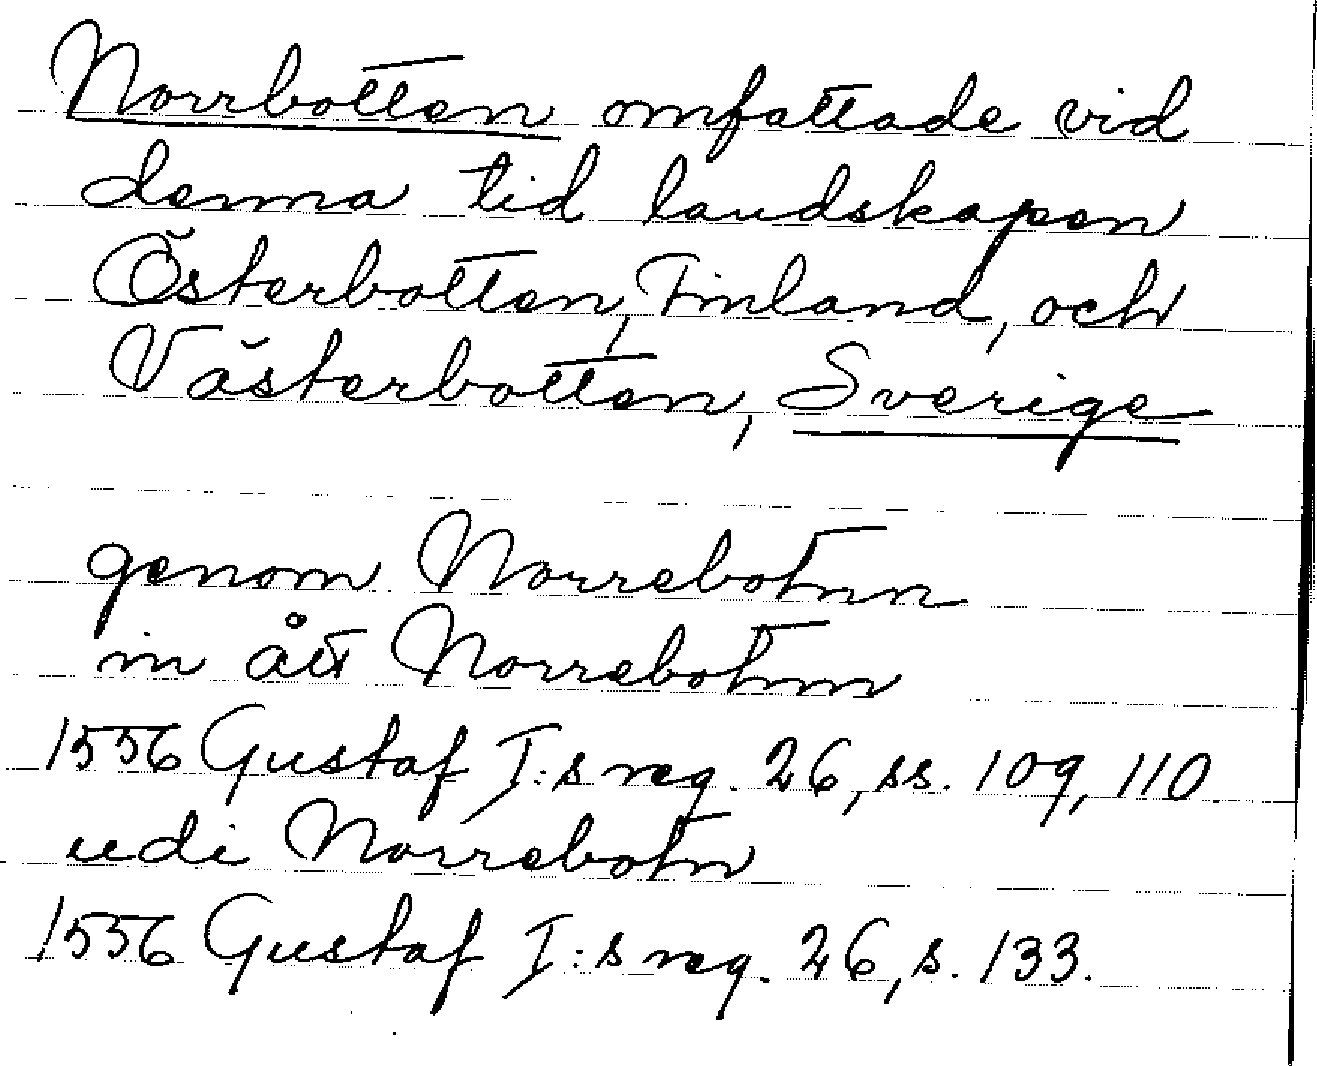 Norrbotten omfattade vid
denna tid landskapen
Österbotten, Finland, och
Västerbotten, Sverige
genom Norrebotnn
in ått Norrebotnn
1556 Gustaf I:s reg. 26, ss. 109, 110
udi Norrebotn
1556 Gustaf I:s reg. 26, s. 133.